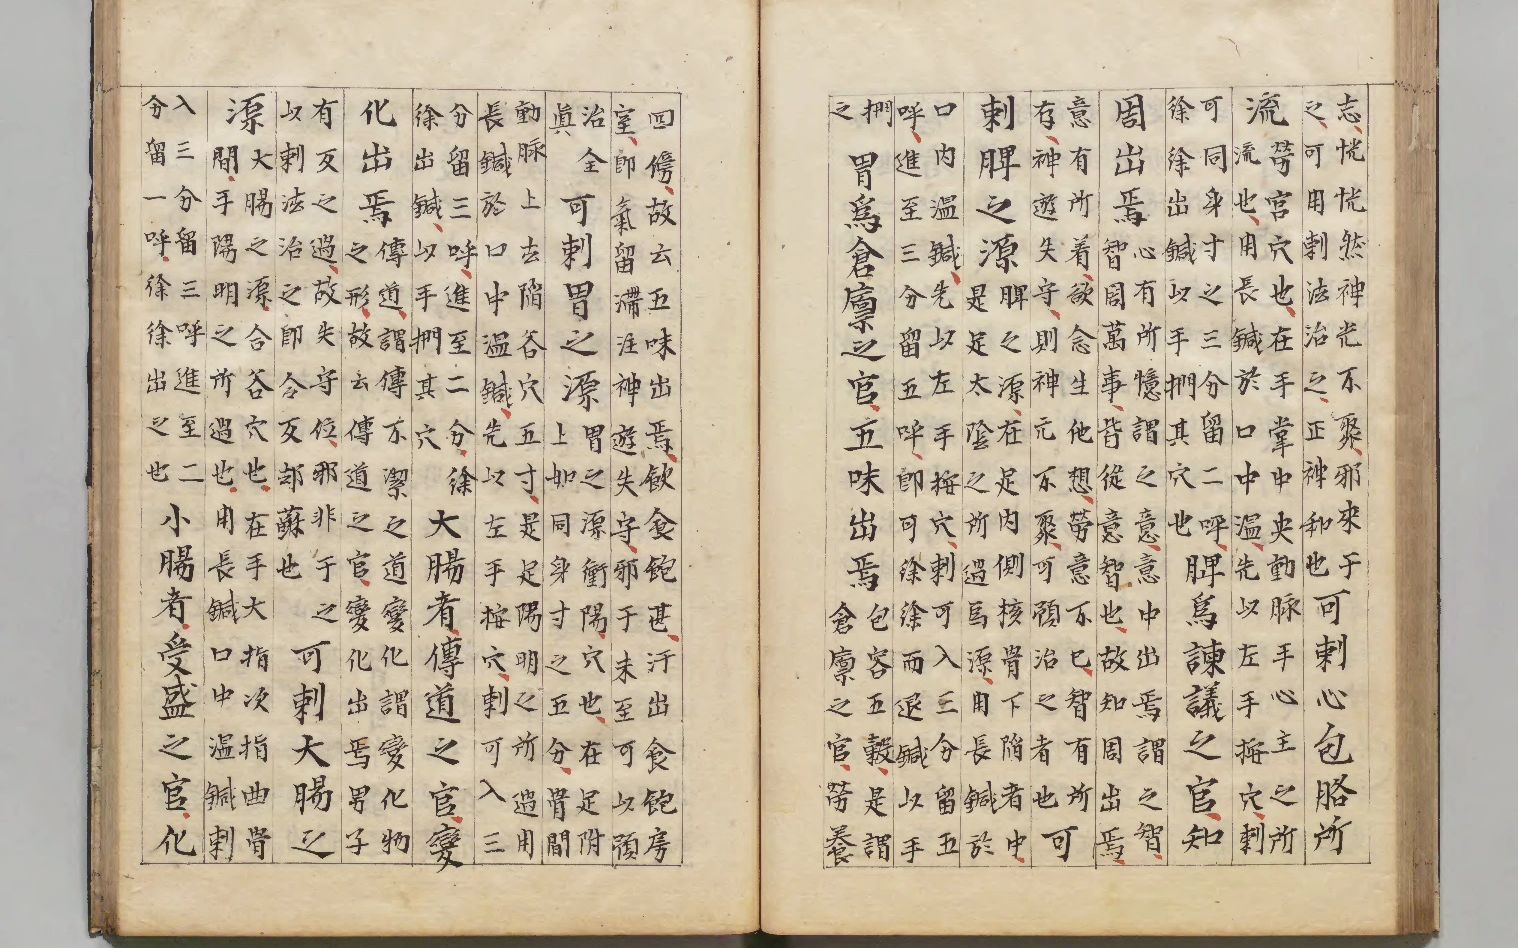 志恍恍然神光不聚邪來于
之可用刺法治之正神和也
可刺心包胳所
流
勞宮穴也在手掌中央動脉手心主之所
流也用長鍼於口中温先以左手按穴刺
可同身寸之三分留二呼
徐徐出鍼以手捫其穴也
脾爲諫議之官知
周出焉
心有所憶謂之意意中出焉謂之智
智周萬事皆從意智也故知周出焉
意有所着欲念生他想勞意不已智有所
存神遊失守則神元不聚可預治之者也
可
刺脾之源
脾之源在足内側核骨下陷者中
是足太陰之所過爲源用長鍼於
口内温鍼先以左手按穴刺可入三分留五
呼進至三分留五呼即可徐徐而退鍼以手
捫
之
胃爲倉廩之官五味出焉
包容五穀是謂
倉廩之官勞養
四傍故云五味出焉飲食飽甚汗出食飽房
室即氣留滯注神遊失守邪于未至可以預
治全
眞
可刺胃之源
胃之源衝陽穴也在足附
上如同身寸之五分骨間
動脉上去陷谷穴五寸是足陽明之所過用
長鍼於口中温鍼先以左手按穴刺可入三
分留三呼進至二分徐
徐出鍼以手捫其穴
大腸者傳道之官變
化出焉
傳道謂傳不潔之道變化謂變化物
之形故云傳道之官變化出焉男子
有反之過故失守位邪非于之
以刺法治之即令反却蘇也
可刺大腸之
源
大腸之源合谷穴也在手大指次指曲骨
間手陽明之所過也用長鍼口中温鍼刺
入三分留三呼進至二
分留一呼徐徐出之也
小腸者受盛之官化